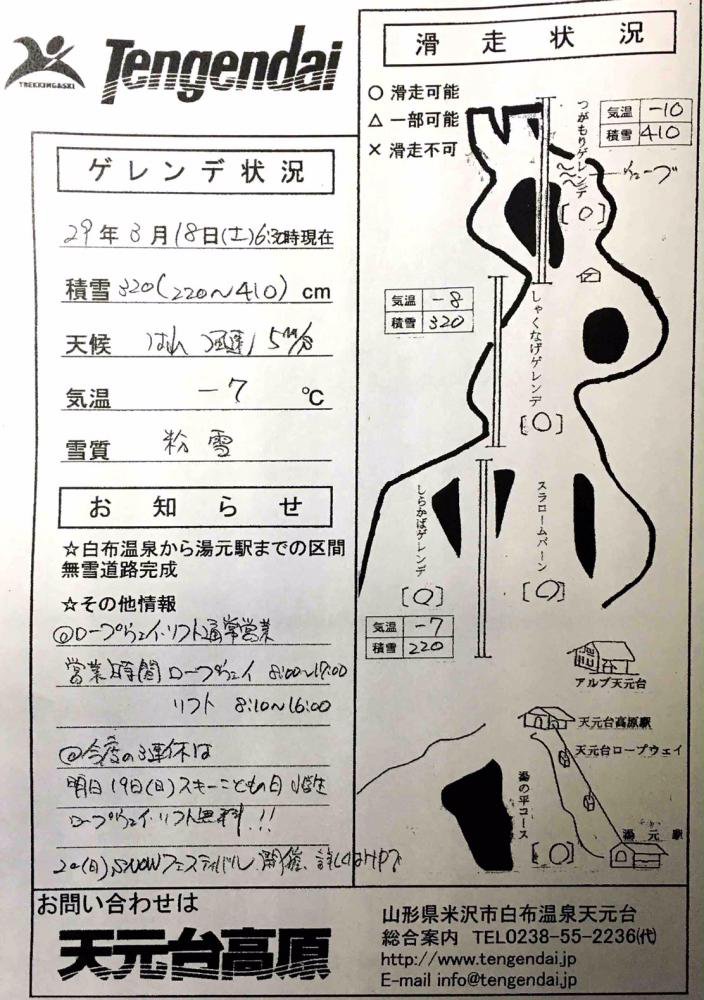 Tengendai
TREKKING&SKI
ゲレンデ状況
29年3月18日(土)6:30時現在
積雪 320(220～410)cm
天候 はれ 風速 5m/s
気温 -7 ℃
雪質 粉雪
お知らせ
☆白布温泉から湯元駅までの区間
無雪道路完成
☆その他情報
◎ロープウェイ・リフト通常営業
営業時間 ロープウェイ 8:00～17:00
リフト 8:10～16:00
◎今度の3連休は
明日19日(日)スキーこどもの日 小学生
ロープウェイ・リフト無料!!
20(日)SNOWフェスティバル開催、詳しくはHPで
滑走状況
○ 滑走可能
△ 一部可能
× 滑走不可
つがもりゲレンデ
[○]
気温 -10
積雪 410
気温 -8
積雪 320
しゃくなげゲレンデ
[○]
しらかばゲレンデ
[○]
スラロームバーン
[○]
気温 -7
積雪 220
アルブ天元台
天元台高原駅
天元台ロープウェイ
湯の平コース
[○]
湯元駅
お問い合わせは
天元台高原
山形県米沢市白布温泉天元台
総合案内 TEL0238-55-2236(代)
http://www.tengendai.jp
E-mail info@tengendai.jp